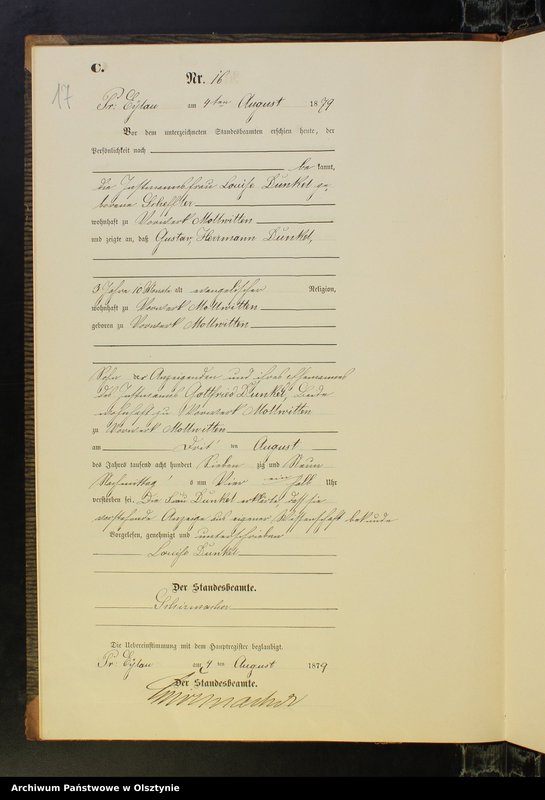 C.
17
Nr. 16
Pr. Eylau am 4ten August 1879
Vor dem unterzeichneten Standesbeamten erschien heute, der
Persönlichkeit nach
be kannt,
die Instmannsfrau Louise Dunkel ge
borene
wohnhaft zu Vorwerk Mollwitten
und zeigte an, daß Gustav Herrmann Dunkel,
3 Jahre 10 Monate alt evangelischer Religion,
wohnhaft zu Vorwerk Mollwitten
geboren zu Vorwerk Mollwitten
Sohn der Anzeigenden und ihres Ehemannes
des Instmanns Gottfried Dunkel, beide
wohnhaft zu Vorwerk Mollwitten
zu Vorwerk Mollwitten
am Drei ten August
des Jahres tausend acht hundert Sieben zig und Neun
Nachmittag s um Vier ein halb Uhr
verstorben sei. Die Frau Dunkel erklärte, daß sie
vorstehende Anzeige aus eigener Wissenschaft bekunde
Vorgelesen, genehmigt und unterschrieben
Louise Dunkel
Der Standesbeamte.
Schirmacher
Die Uebereinstimmung mit dem Hauptregister beglaubigt.
Pr. Eylau am 4 ten August 1879
Der Standesbeamte.
Schirmacher
Archiwum Państwowe w Olsztynie